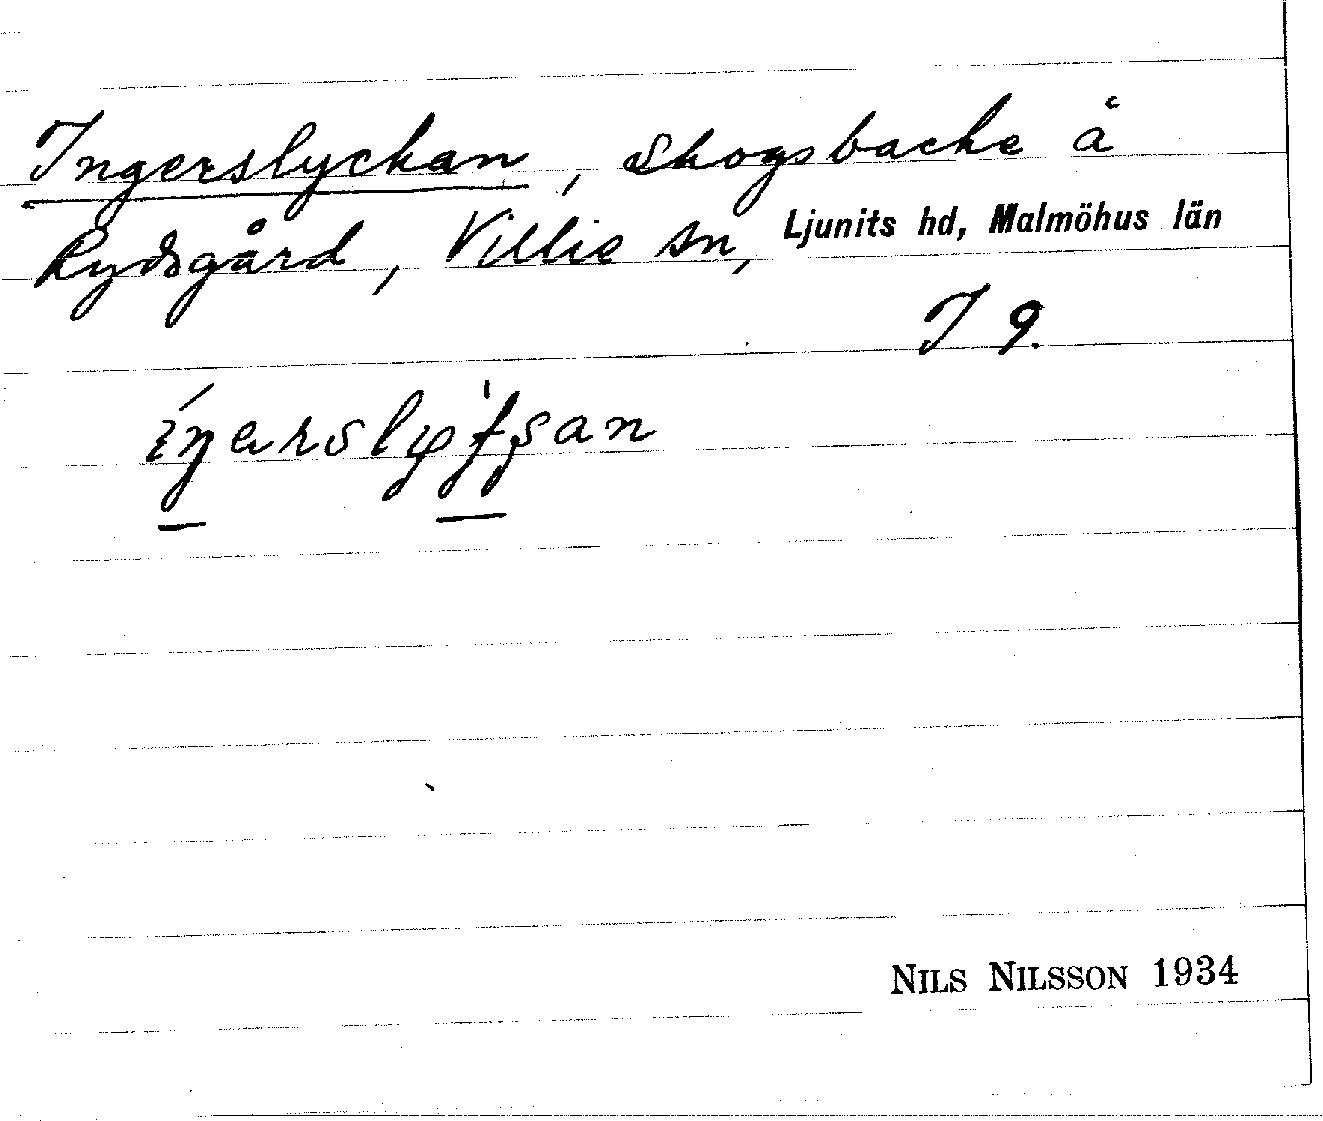 Ingerslyckan, skogsbacke å
Rydsgård, Villie sn, Ljunits hd, Malmöhus län
I 9.
NILS NILSSON 1934